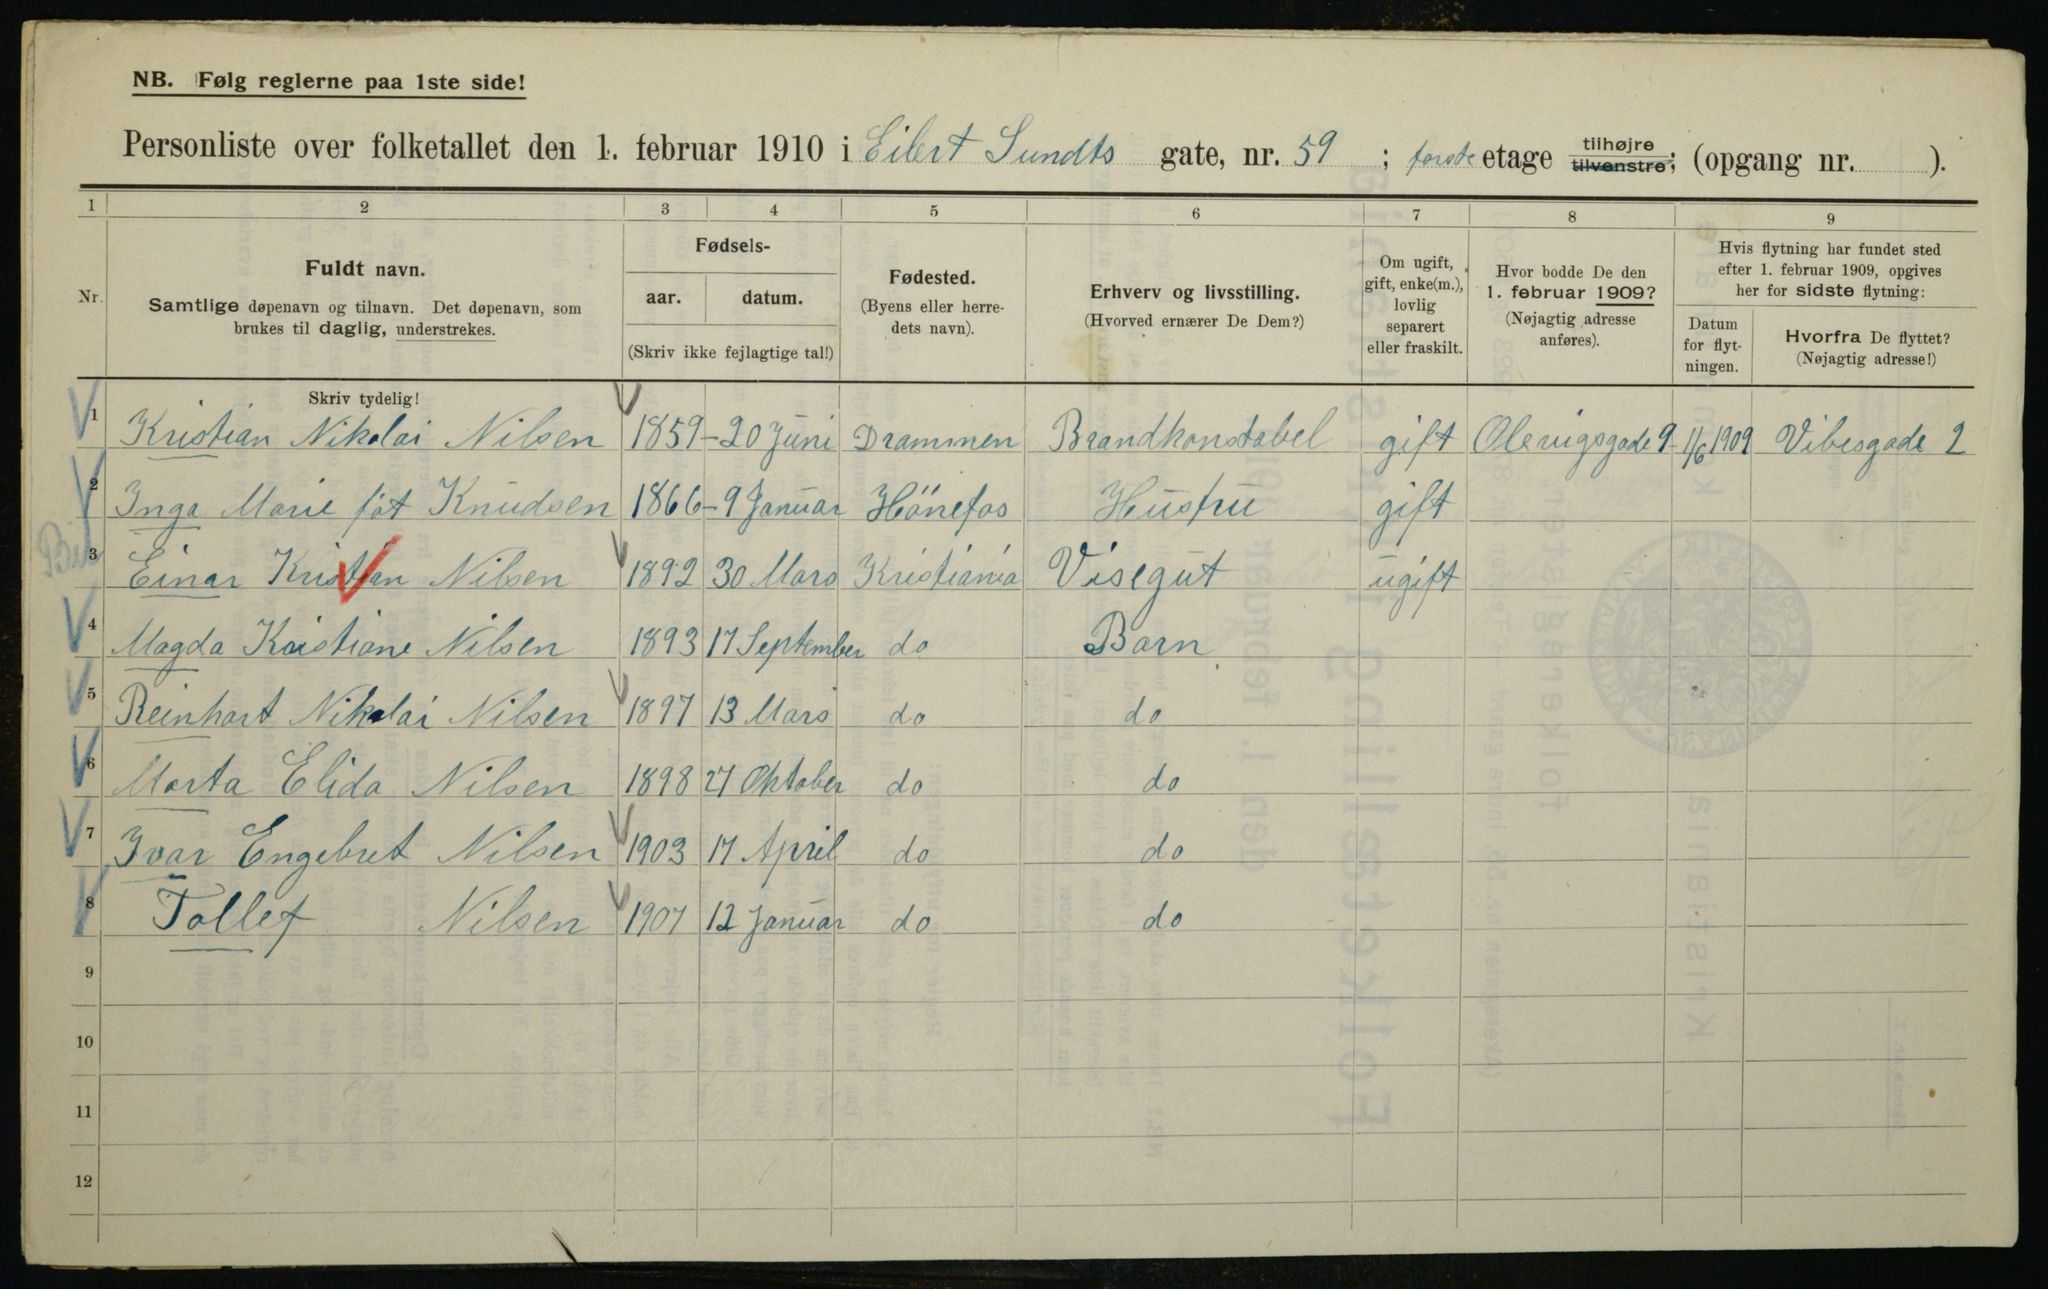 NB. Følg reglerne paa 1ste side!
Personliste over folketallet den 1. februar 1910 i Eilert Sundts gate, nr. 59 ; første etage tilhøjre tilvenstre; (opgang nr. ).
1 2 3 4 5 6 7 8 9
Nr.
Fuldt navn.
Samtlige døpenavn og tilnavn. Det døpenavn, som
brukes til daglig, understrekes.
Fødsels-
aar. datum.
(Skriv ikke fejlagtige tal!)
Fødested.
(Byens eller herre-
dets navn).
Erhverv og livsstilling.
(Hvorved ernærer De Dem?)
Om ugift,
gift, enke(m.),
lovlig
separert
eller fraskilt.
Hvor bodde De den
1. februar 1909?
(Nøjagtig adresse
anføres).
Hvis flytning har fundet sted
efter 1. februar 1909, opgives
her for sidste flytning:
Datum
for flyt-
ningen.
Hvorfra De flyttet?
(Nøjagtig adresse!)
Skriv tydelig!
1 Kristian Nikolai Nilsen 1859 - 20 Juni Drammen Brandkonstabel gift 9 1/6 1909 Vibesgade 2
2 Inga Marie føt Knudsen 1866 - 9 Januar Hönefos Hustru gift
3 Einar Kristian Nilsen 1892 30 Mars Kristiania Visegut ugift
4 Magda Kristiane Nilsen 1893 17 September do Barn
5 Reinhart Nikolai Nilsen 1897 13 Mars do do
6 Marta Elida Nilsen 1898 27 Oktober do do
7 Ivar Engebret Nilsen 1903 17 April do do
8 Tollef Nilsen 1907 12 Januar do do
9
10
11
12